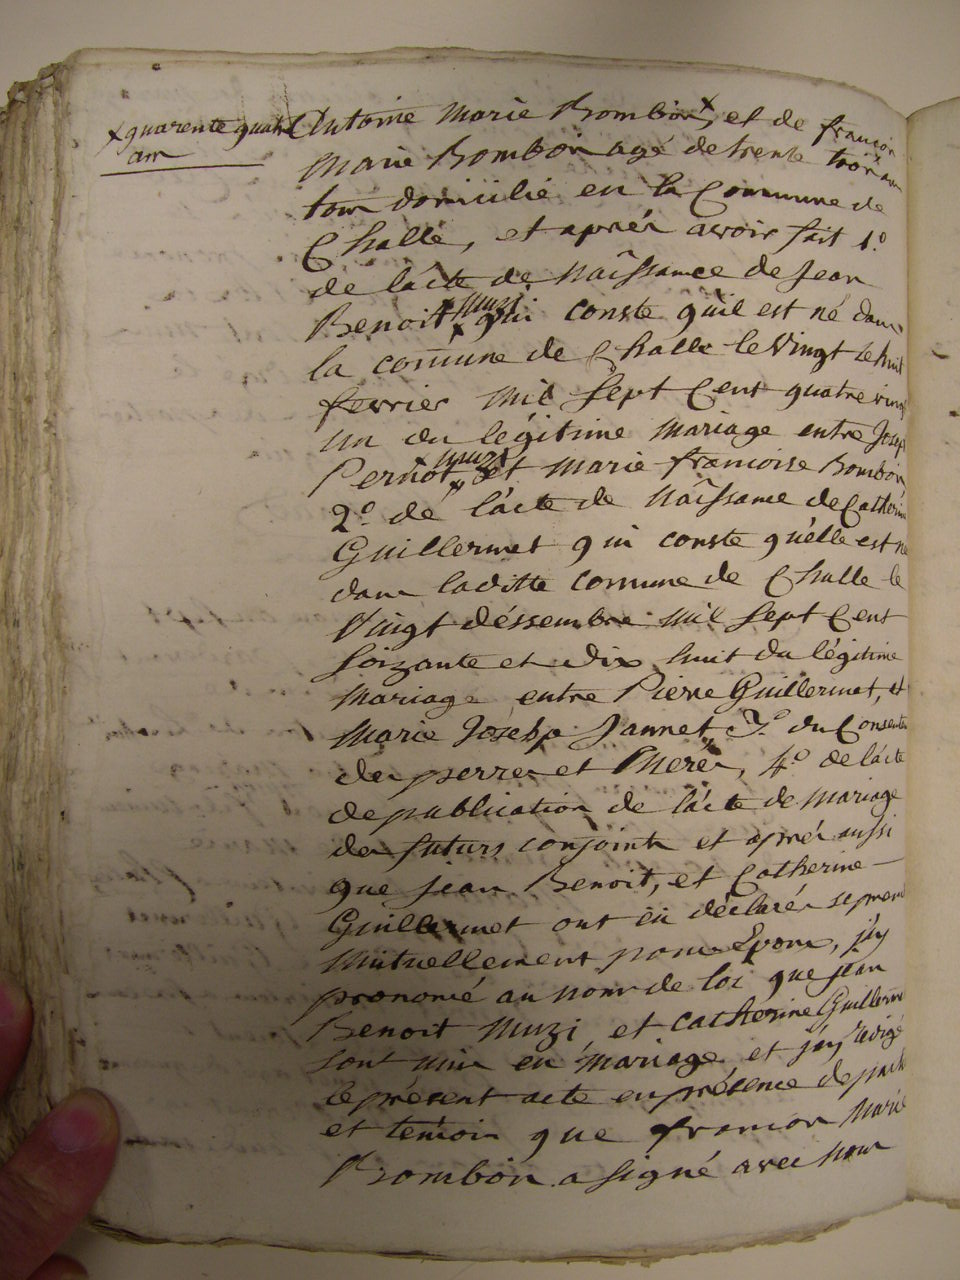 x quarente quatre
ans
Antoine Marie Bombin x, et de françois
Marie Bombin agé de trente trois ans
tous domicilié en la Commune de
Challe, et aprés avoir fait 1.º
de lácte de Naîssance de Jean
Benoit x Muzi qui conste qúil est né dans
la comune de Challe le Vingt le huit
fevrier Mil Sept Cent quatre vingt
un du légitime Mariage entre Josep
Pernot x muzi et Marie francoise Bombin
2.º dé lácte de Naîssance de Catherine
Guillermet qui conste qúelle est né
dans laditte comune de Challe le
Vingt déssembre Mil Sept Cent
Soizante et dix huit du légitime
Mariage entre Pierre Guillermet, et
Marie Joseph Jannet 3.º du Consente
des perres et Meres, 4.º de lácte
de publication de lácte de Mariage
des futurs conjoints et aprés aussi
que jean Benoit, et Catherine
Guillermet ont éu déclarés se prendre
Mutuellement pour Epoux, j'ay
prononcé au nom de loi que jean
Benoit Muzi et Catherine Guillerme
sont unis en Mariage et j'ay redigé
le présent acte en présence de parts
et témoin que francois Marie
Bombin a signé avec nous